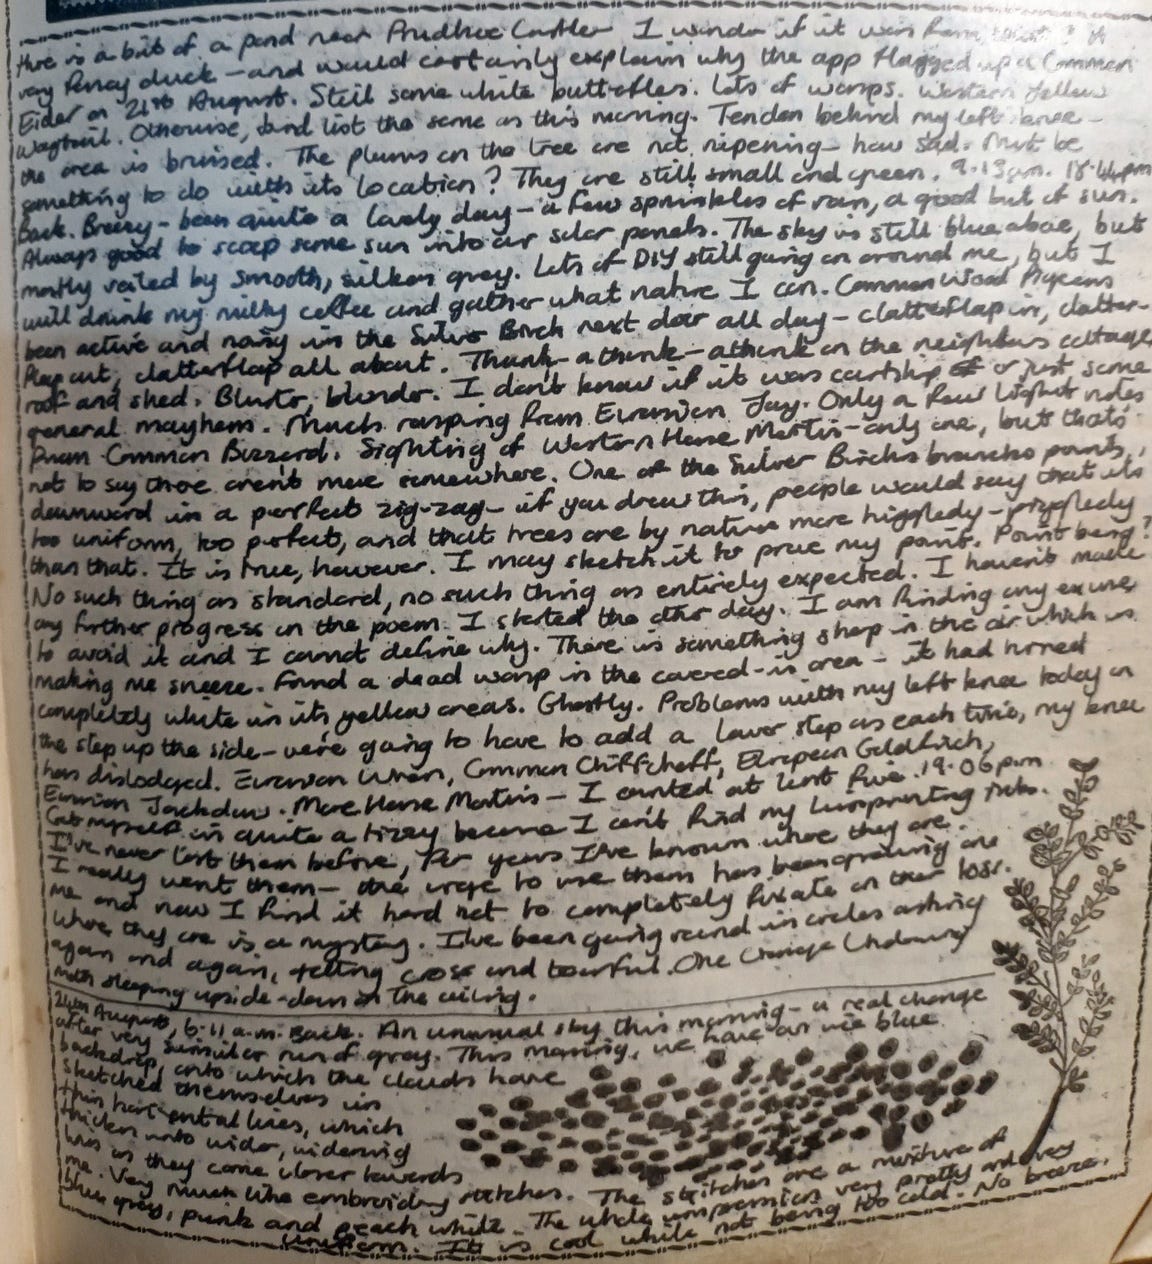 there is a bit of a pond near Prudhoe Castle. I wonder if it was from there? A
very fancy duck - and would certainly explain why the app flagged up a Common
Eider on 21st August. Still some white butterflies. Lots of wasps. Western Yellow
Wagtail. Otherwise, bird list the same as this morning. Tendon behind my left knee -
the area is bruised. The plums on the tree are not ripening - how sad. Must be
something to do with its location? They are still small and green. 9.13am. 18.44pm
Back. Breezy - been quite a lovely day - a few sprinkles of rain, a good bit of sun.
Always good to scoop some sun into our solar panels. The sky is still blue above, but
mostly veiled by smooth, silken grey. Lots of DIY still going on around me, but I
will drink my milky coffee and gather what nature I can. Common Wood Pigeons
been active and noisy in the Silver Birch next door all day - clatterflap in, clatter-
flap out, clatterflap all about. Thunk-athunk-athunk on the neighbours cottage
roof and shed. Bluster, blunder. I don't know if it was courtship or just some
general mayhem. Much rasping from Eurasian Jay. Only a few light notes
from Common Buzzard. Sighting of Western House Martin - only one, but that's
not to say there aren't more somewhere. One of the Silver Birch's branches points
downward in a perfect zig-zag - if you drew this, people would say that it's
too uniform, too perfect, and that trees are by nature more higgledy-piggledy
than that. It is true, however. I may sketch it to prove my point. Point being?
No such thing as standard, no such thing as entirely expected. I haven't made
any further progress on the poem I started the other day. I am finding any excuse
to avoid it and I cannot define why. There is something sharp in the air which is
making me sneeze. Found a dead wasp in the covered-in area - it had turned
completely white in its yellow areas. Ghostly. Problems with my left knee today on
the step up the side - we're going to have to add a lower step as each time, my knee
has dislodged. Eurasian Wren, Common Chiffchaff, European Goldfinch,
Eurasian Jackdaw. More House Martins - I counted at least five. 19.06pm
Got myself in quite a tizzy because I can't find my linoprinting tubs.
I've never lost them before, for years I've known where they are.
I really want them - the urge to use them has been growing in
me and now I find it hard not to completely fixate on their loss.
Where they are is a mystery. I've been going round in circles asking
again and again, getting cross and tearful. One Orange Underwing
moth sleeping upside-down on the ceiling.
24th August, 6.11a.m. Back. An unusual sky this morning - a real change
after very similar run of grey. This morning, we have an ice blue
backdrop, onto which the clouds have
sketched themselves in
thin horizontal lines, which
thicken into wider, widening
lines as they come closer towards
me. Very much like embroidery stitches. The stitches are a mixture of
blue grey, pink and peach white. The whole impression very pretty and very
uniform. It is cool while not being too cold. No breeze,